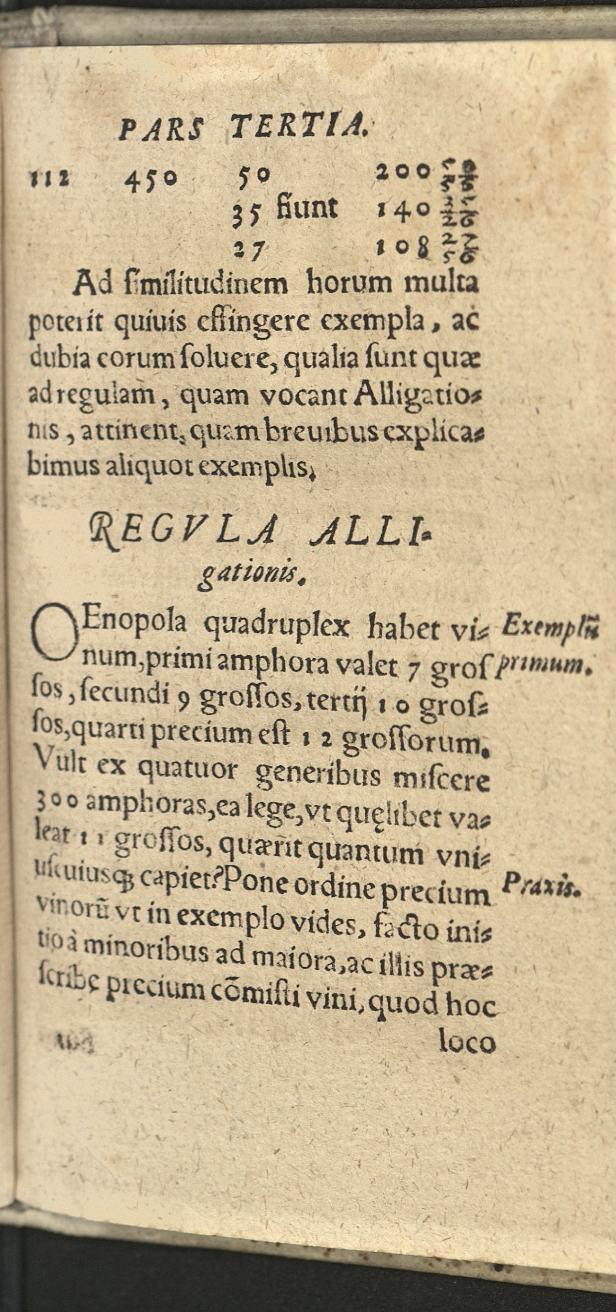 PARS TERTIA.
112 450 50 200 50/56
35 fiunt 140
27 108
Ad similitudinem horum multa
poterit quiuis effingere exempla, ac
dubia eorum soluere, qualia sunt quæ
ad regulam, quam vocant Alligatio-
nis, attinent, quam breuibus explica-
bimus aliquot exemplis.
REGVLA ALLI-
gationis.
OEnopola quadruplex habet vi- Exemplũ
num, primi amphora valet 7 gros primum.
sos, secundi 9 grossos, tertij 10 gros-
sos, quarti precium est 12 grossorum.
Vult ex quatuor generibus miscere
300 amphoras, ea lege, vt quęlibet va-
leat 11 grossos, quærit quantum vni-
uscuiusqꝫ capiet? Pone ordine precium Praxis.
vinorũ vt in exemplo vides, facto ini-
tio à minoribus ad maiora, ac illis præ-
scribe precium cõmisti vini, quod hoc
loco